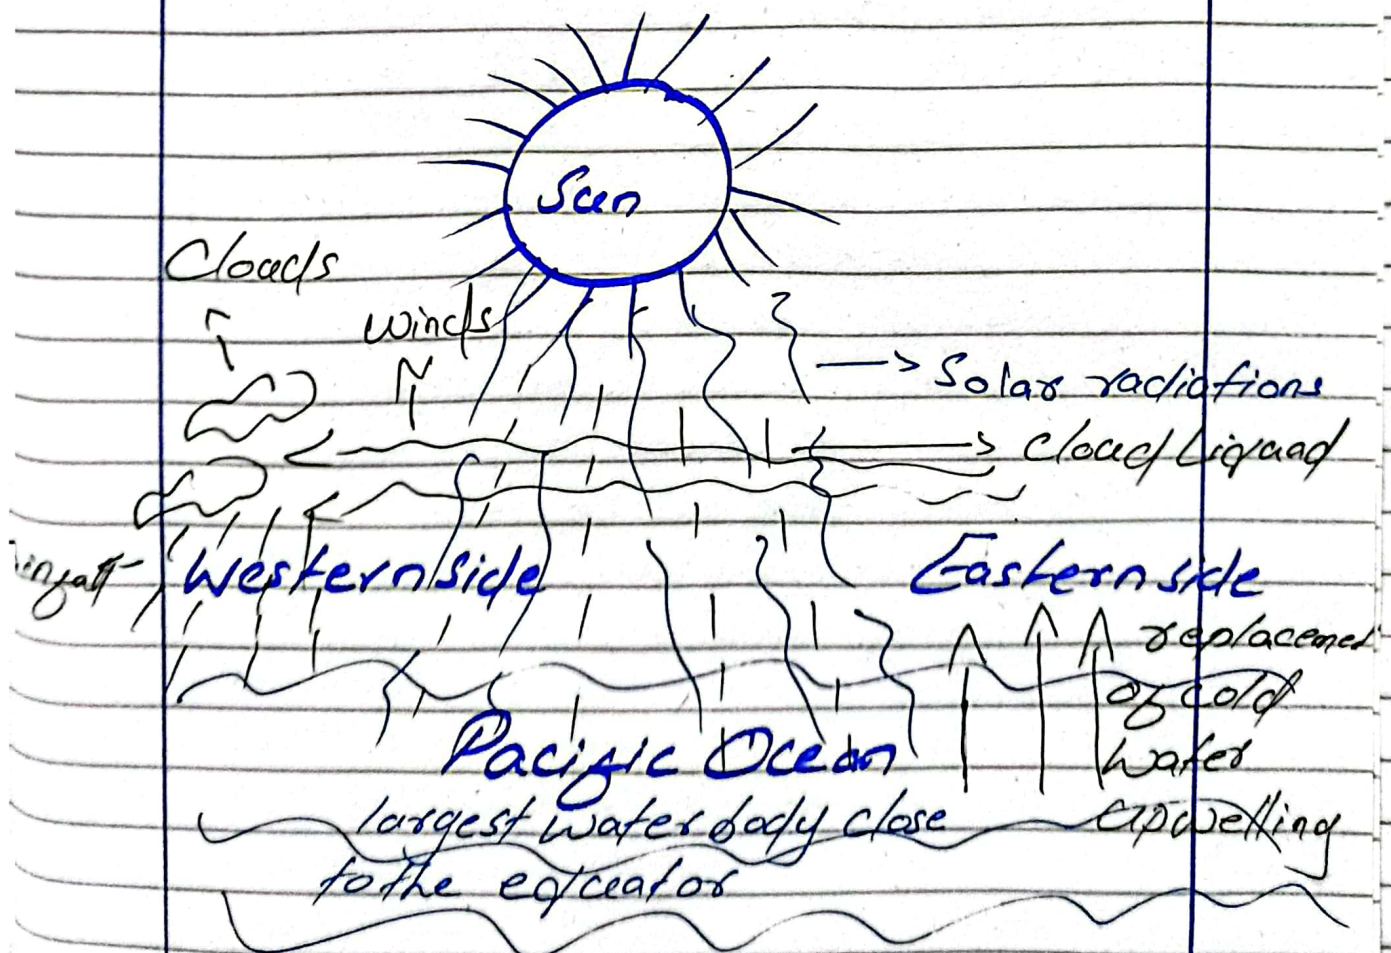 Sun
Clouds
Winds
Solar radiations
Cloud Liquad
Western side
Eastern side
replacemet
of cold
water
upwelling
Pacific Ocean
largest water body close
to the equator